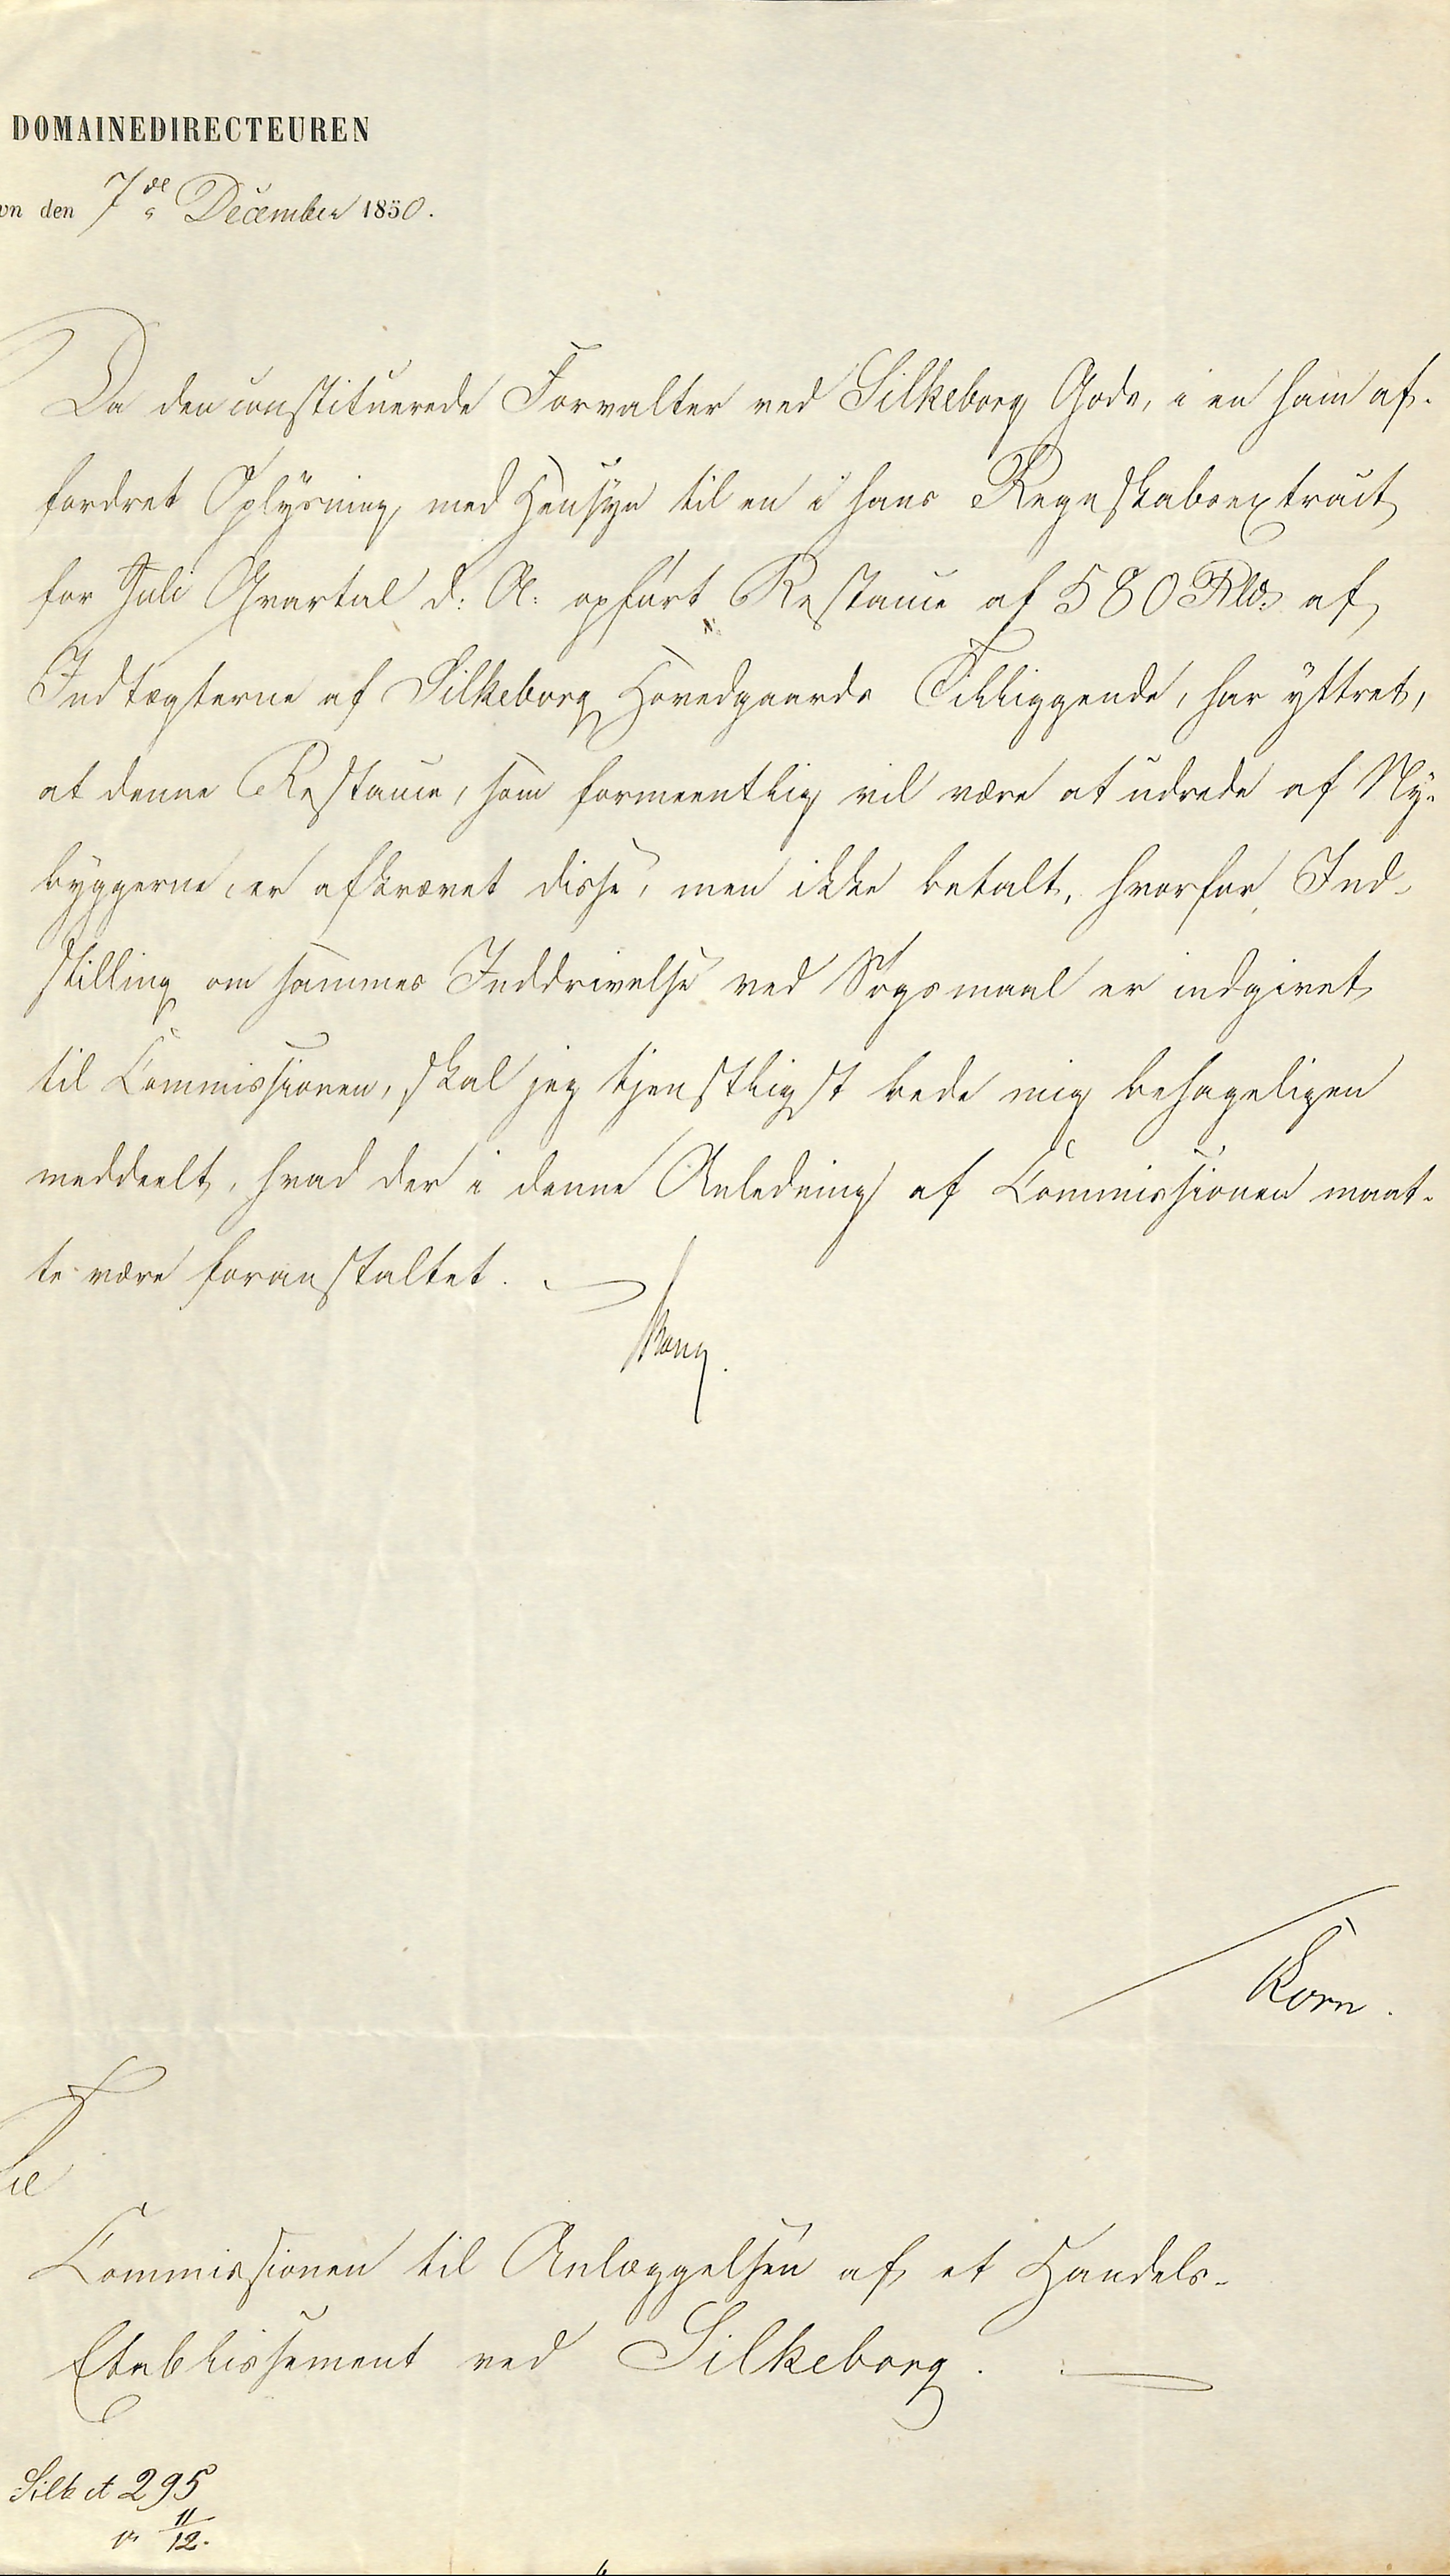 DOMAINEDIRECTEUREN
vn den 7de December 1850.
Da den constituerede Forvalter ved Silkeborg Gods, i en ham af-
fordret Oplysning med Hensyn til en i hans Regnskabsextract
for Juli Qvartal d: A: opført Restance af 580 Rbd. af
Indtægterne af Silkeborg Hovedgaards Tilliggende, har yttret,
at denne Restance, som formeentlig vil være at udrede af Ny-
byggerne, er afkrævet disse, men ikke betalt, hvorfor Ind-
stilling om sammes Inddrivelse ved Søgsmaal er indgivet
til Commissionen, skal jeg tjenstligst bede mig behageligen
meddeelt, hvad der i denne Anledning af Commissionen maat-
te være foranstaltet.
Bang.
Korn.
Til
Commissionen til Anlæggelsen af et Handels-
Etablissement ved Silkeborg.
Silk et 295
11/12.